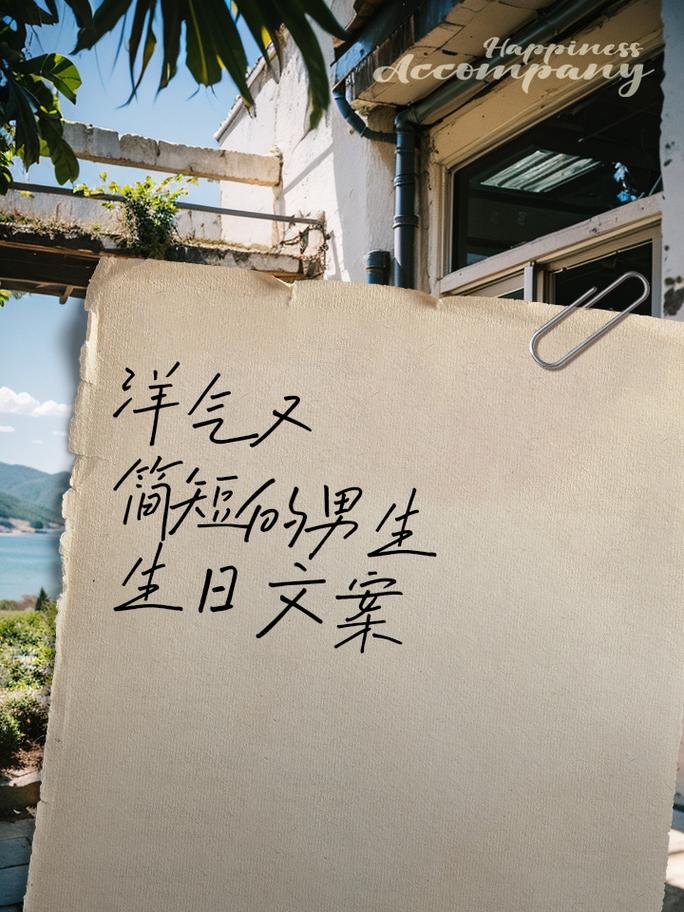 Happiness
Accompany
洋气又
简短的男生
生日文案